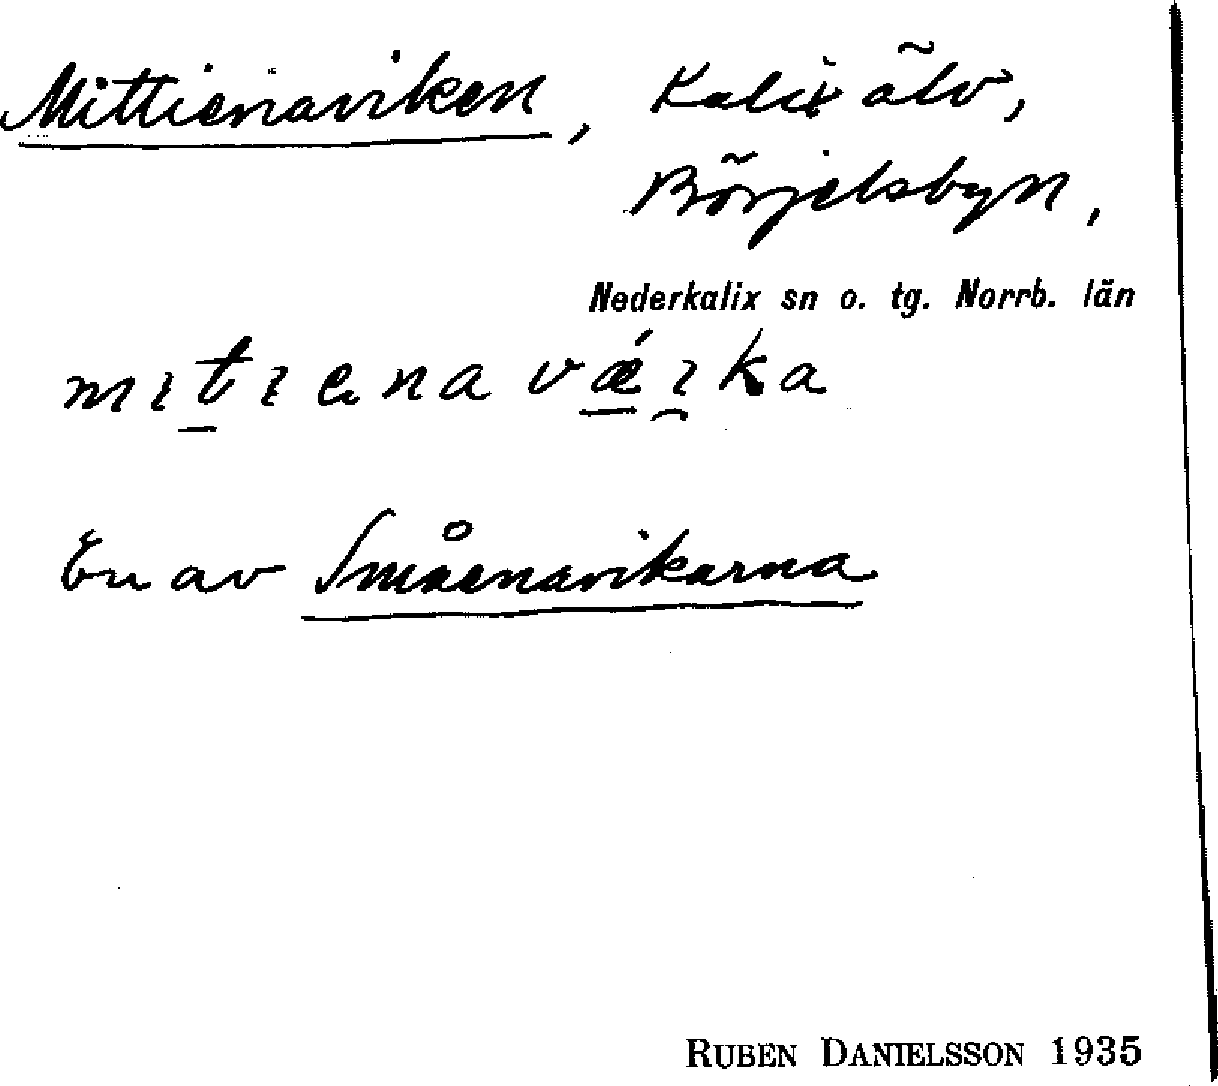 Mittienaviken, Kalix älv,
Börjelsbyn,
Nederkalix sn o. tg. Norrb. län
mıt̲ıena vǽ̲ı̯ka
En av Småenavikarna
RUBEN DANIELSSON 1935